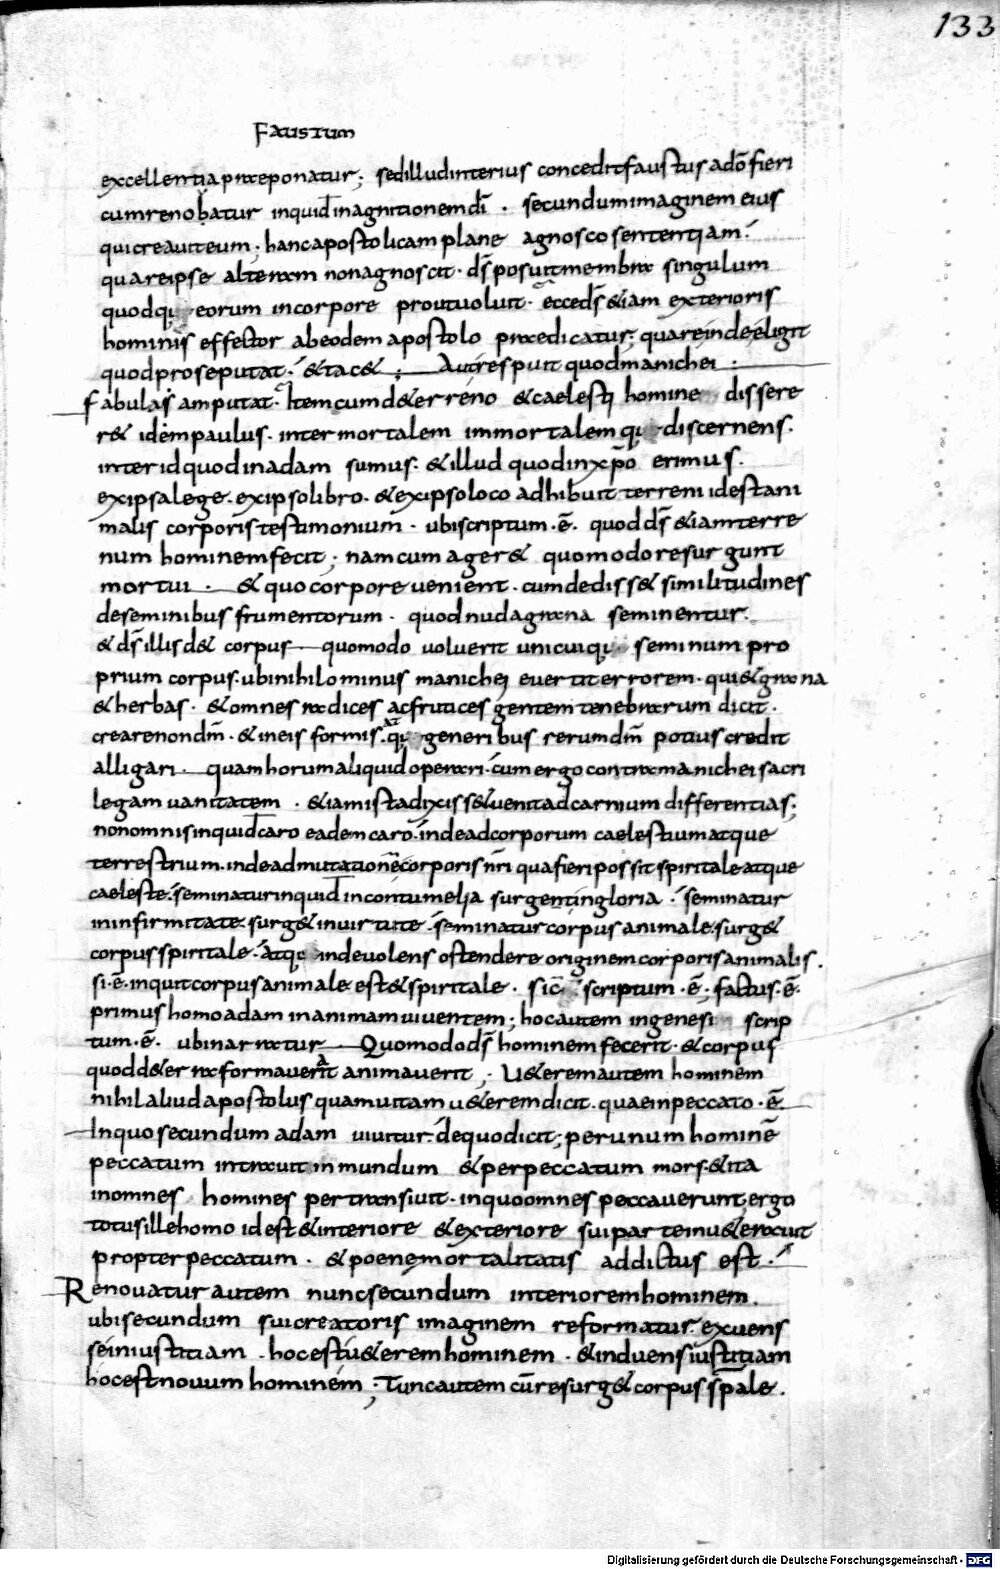 133
Faustum
excellentia praeponatur; sed illud interius concedit faustus a dō fieri
cum renobatur inquid in agnitionem dī . secundum imaginem eius
qui creauit eum; hanc apostolicam plane agnosco sententiam.
quare ipse alteram non agnoscit. ds̄ posuit membra singulum
quodqu eorum in corpore prout uoluit. ecce ds̄ &iam exterioris
hominis effector ab eodem apostolo praedicatur; quare inde eligit
quod pro se putat. & tac&; Aut respuit quod manichei
fabulas amputat. Item cum d& erreno & caelesti homine dissere
r& idem paulus. inter mortalem immortalemqu discernens.
inter id quod in adam sumus. & illud quod in xp̄o erimus.
ex ipsa lege. ex ipso libro. & ex ipso loco adhibuit terreni id est ani
malis corporis testimonium. ubi scriptum .ē. quod ds̄ &iam terre
num hominem fecit; nam cum ager& quomodo resurgunt
mortui . & quo corpore uenient. cum dediss& similitudines
de seminibus frumentorum. quod nuda grana seminentur.
& ds̄ illis d& corpus quomodo uoluerit unicuiqu seminum pro
prium corpus. ubi nihilominus manichei euertit errorem. qui & grana
& herbas. & omnes radices ac frutices gentem tenebrarum dicit.
creare non dm̄. & in eis formis. atqu generibus rerum dm̄ potius credit
alligari. quam horum aliquid operari. cum ergo contra manichei sacri
legam uanitatem . &iam ista dixiss& uenit ad carnium differentias;
non omnis inquid caro eadem caro. inde ad corporum caelestium atque
terrestrium. inde ad mutationē corporis nr̄i qua fieri possit spiritale atque
caeleste. seminatur inquid in contumelia surget in gloria. seminatur
in infirmitate. surg& in uirtute. seminatur corpus animale. surg&
corpus spiritale. atqu inde uolens ostendere originem corporis animalis.
si .ē. inquit corpus animale est & spiritale. sic scriptum .ē. factus .ē.
primus homo adam in animam uiuentem; hoc autem in genesi scrip
tum .ē. ubi narratur Quomodo ds̄ hominem fecerit. & corpus
quod d& erra formauerat animauerit; U&erem autem hominem
nihil aliud apostolus quam uitam u&erem dicit. quae in peccato .ē.
In quo secundum adam uiuitur. de quo dicit; per unum hominē
peccatum intrauit in mundum & per peccatum mors. & ita
in omnes homines pertransiuit. in quo omnes peccauerunt, ergo
totus ille homo id est & interiore & exteriore sui parte inu&erauit
propter peccatum . & poene mortalitatis addictus est.
Renouatur autem nunc secundum interiorem hominem.
ubi secundum sui creatoris imaginem reformatur. exuens
se iniustitiam . hoc est u&erem hominem . & induens iustitiam
hoc est nouum hominem; Tunc autem cūm resurg& corpus sp̄ale.
Digitalisierung gefördert durch die Deutsche Forschungsgemeinschaft - DFG